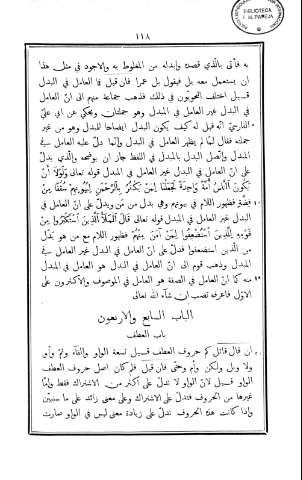 ١١٨
به فأتى بالذي قصده وابدله من المغلوط به والاجود في مثل هذا
ان يستعمل معه بل فيقول بل عمرا فان قيل فما العامل في البدل
قيل اختلف النحويّون في ذلك فذهب جماعة منهم الى انّ العامل في
البدل غير العامل في المبدل وهو جملتان ويحكى عن ابي عليّ
الفارسيّ انّه قيل له كيف يكون البدل ايضاحا للمبدل وهو من غير
جملته فقال لمّا لم يظهر العامل في البدل وإنّما دلّ عليه العامل في
المبدل واتّصل البدل بالمبدل في اللفظ جاز ان يوضحه والذي يدلّ
على انّ العامل في البدل غير العامل في المبدل قوله تعالى وَلَوْلَا أَنْ
يَكُونَ ٱلنَّاسُ أُمَّةً وَاحِدَةً لَجَعَلْنَا لِمَنْ يَكْفُرُ بِٱلرَّحْمٰنِ لِبُيُوتِهِمْ سُقُفًا مِنْ
فِضَّةٍ فظهور اللام في بيوتهم وهي بدل من مَن ويدلّ على انّ العامل في
البدل غير العامل في المبدل قوله تعالى قَالَ ٱلْمَلَأُ ٱلَّذِينَ ٱسْتَكْبَرُوا مِنْ
قَوْمِهِ لِلَّذِينَ ٱسْتُضْعِفُوا لِمَنْ آمَنَ مِنْهُمْ فظهور اللام مع من هو بدل
من الّذين استضعفوا فدلّ على انّ العامل في البدل غير العامل في
المبدل وذهب قوم الى انّ العامل في البدل هو العامل في المبدل
كما انّ العامل في الصفة هو العامل في الموصوف والاكثرون على
الاوّل فاعرفه تصب ان شاء الله تعالى
الباب السابع والاربعون
باب العطف
ان قال قائل كم حروف العطف قيل تسعة الواو والفاء وثمّ وأو
ولا وبل ولكن وأم وحتّى فان قيل فلم كان اصل حروف العطف
الواو قيل لانّ الواو لا تدلّ على أكثر من الاشتراك فقط وامّا
غيرها من الحروف فتدلّ على الاشتراك وعلى معنى زائد على ما سنبيّن
وإذا كانت هذه الحروف تدلّ على زيادة معنى ليس في الواو صارت